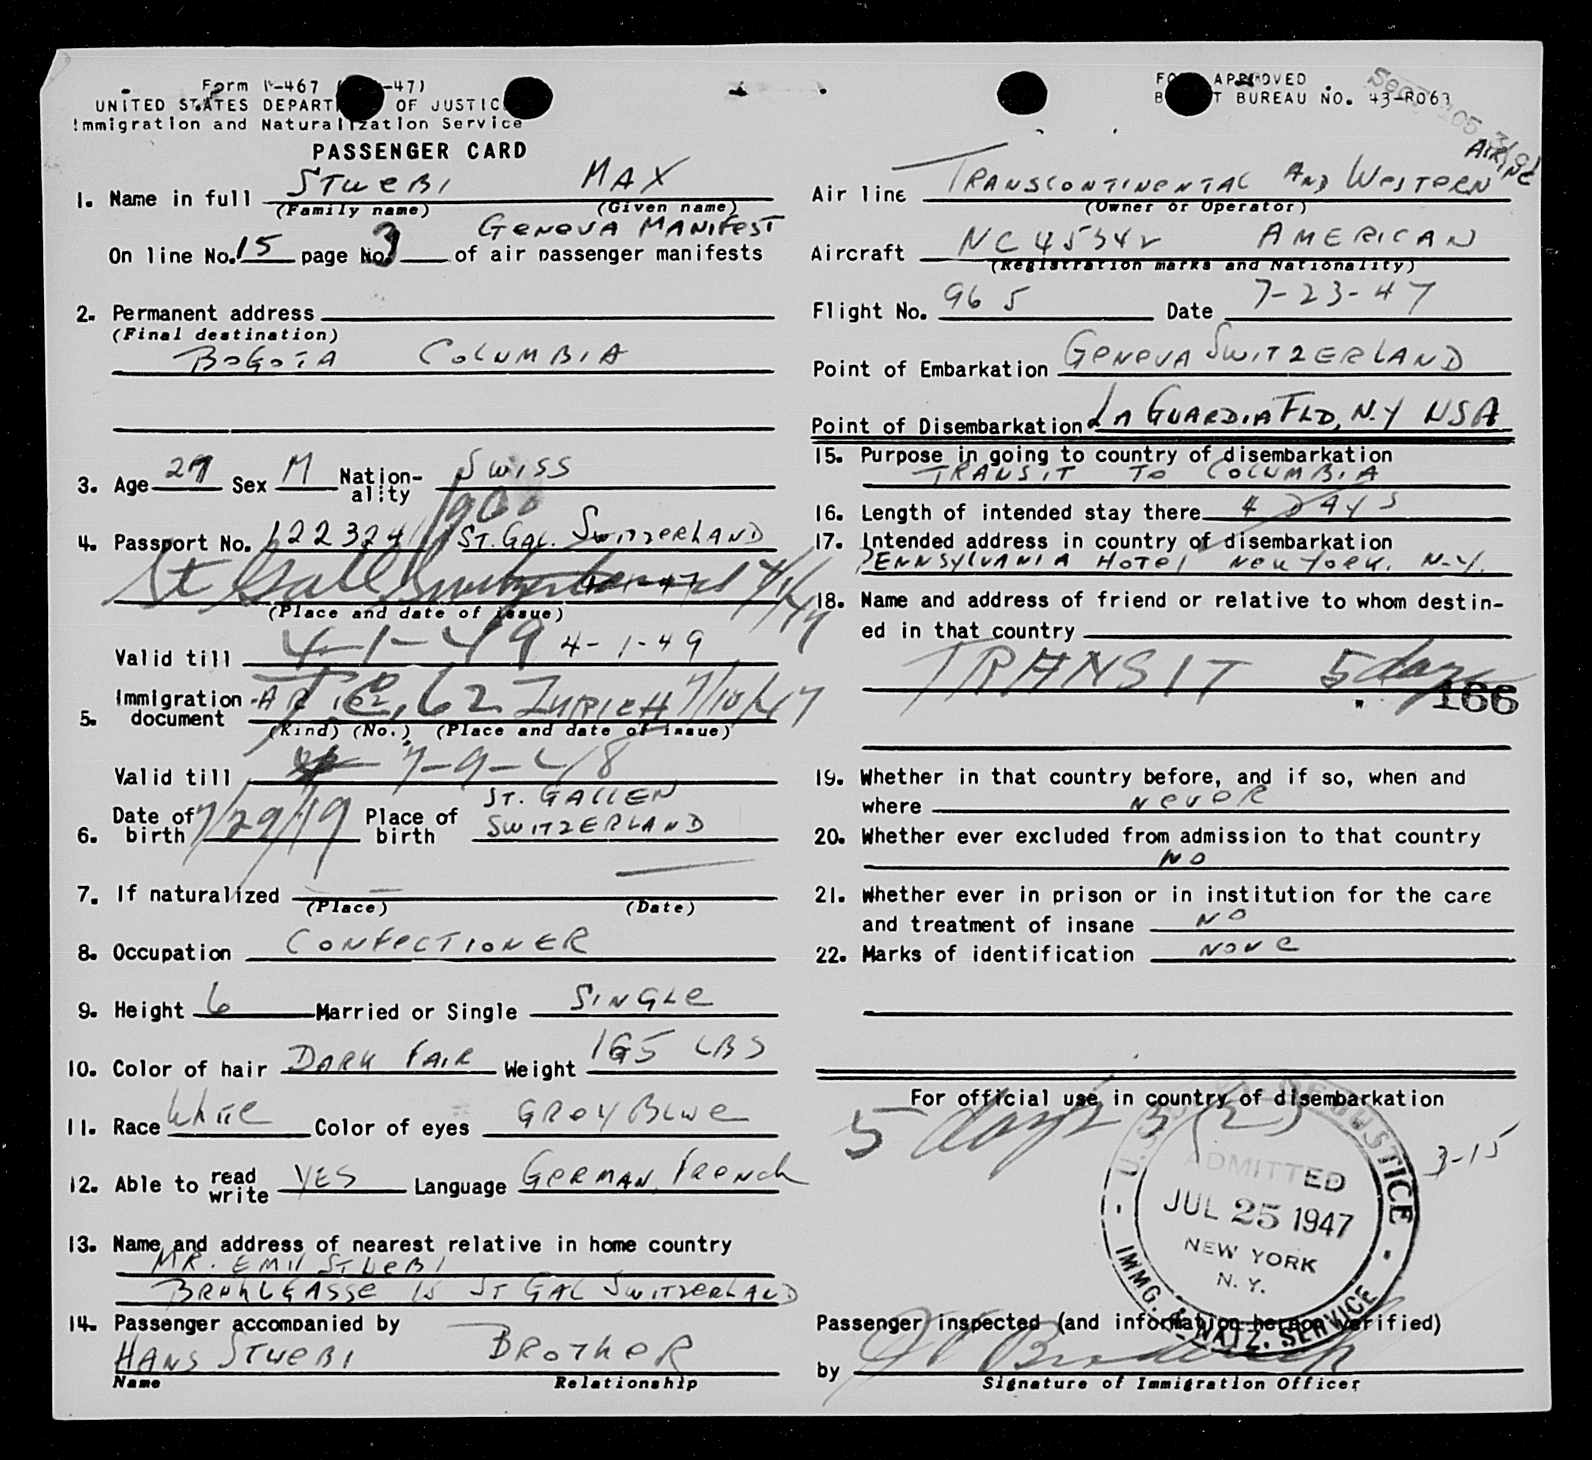 Form I-467 -47)
UNITED STATES DEPART OF JUSTIC
Immigration and Naturalization Service
PASSENGER CARD
1. Name in full STUEBI MAX
(Family name) (Given name)
GENEVA MANIFEST
On line No. 15 page No. 3 of air passenger manifests
2. Permanent address
(Final destination)
BOGOTA COLUMBIA
3. Age 27 Sex M Nation-ality SWISS
4. Passport No. 122324/1900 ST. GAL. SWITZERLAND
St Gall Switzerland 4/1/47
(Place and date of issue)
Valid till 4-1-49 4-1-49
5. Immigration document 62 ZURICH 7/10/47
(Kind) (No.) (Place and date of issue)
Valid till 7-9-48
6. Date of birth 7/29/19 Place of birth ST. GALLEN SWITZERLAND
7. If naturalized
(Place) (Date)
8. Occupation CONFECTIONER
9. Height 6 Married or Single SINGLE
10. Color of hair DARK FAIR Weight 165 LBS
11. Race White Color of eyes GREY BLUE
12. Able to read write YES Language GERMAN, FRENCH
13. Name and address of nearest relative in home country
MR. EMIL STUEBI
BRUHLGASSE 15 ST GAL SWITZERLAND
14. Passenger accompanied by
HANS STUEBI BROTHER
Name Relationship
FO APPROVED
B T BUREAU NO. 43-R063
Air line TRANSCONTINENTAL AND WESTERN AIR INC
(Owner or Operator)
Aircraft NC45342 AMERICAN
(Registration marks and Nationality)
Flight No. 965 Date 7-23-47
Point of Embarkation GENEVA SWITZERLAND
Point of Disembarkation LA GUARDIA FLD, N.Y USA
15. Purpose in going to country of disembarkation
TRANSIT TO COLUMBIA
16. Length of intended stay there 4 DAYS
17. Intended address in country of disembarkation
PENNSYLVANIA HOTEL NEW YORK. N.Y.
18. Name and address of friend or relative to whom destin-
ed in that country
TRANSIT 5 days
166
19. Whether in that country before, and if so, when and
where NEVER
20. Whether ever excluded from admission to that country
NO
21. Whether ever in prison or in institution for the care
and treatment of insane NO
22. Marks of identification NONE
For official use in country of disembarkation
5 days 3(2)
3-15
U.S. DEPT. JUSTICE
ADMITTED
JUL 25 1947
NEW YORK
N. Y.
IMMG. & NATZ. SERVICE
Passenger inspected (and information hereon verified)
by
Signature of Immigration Officer